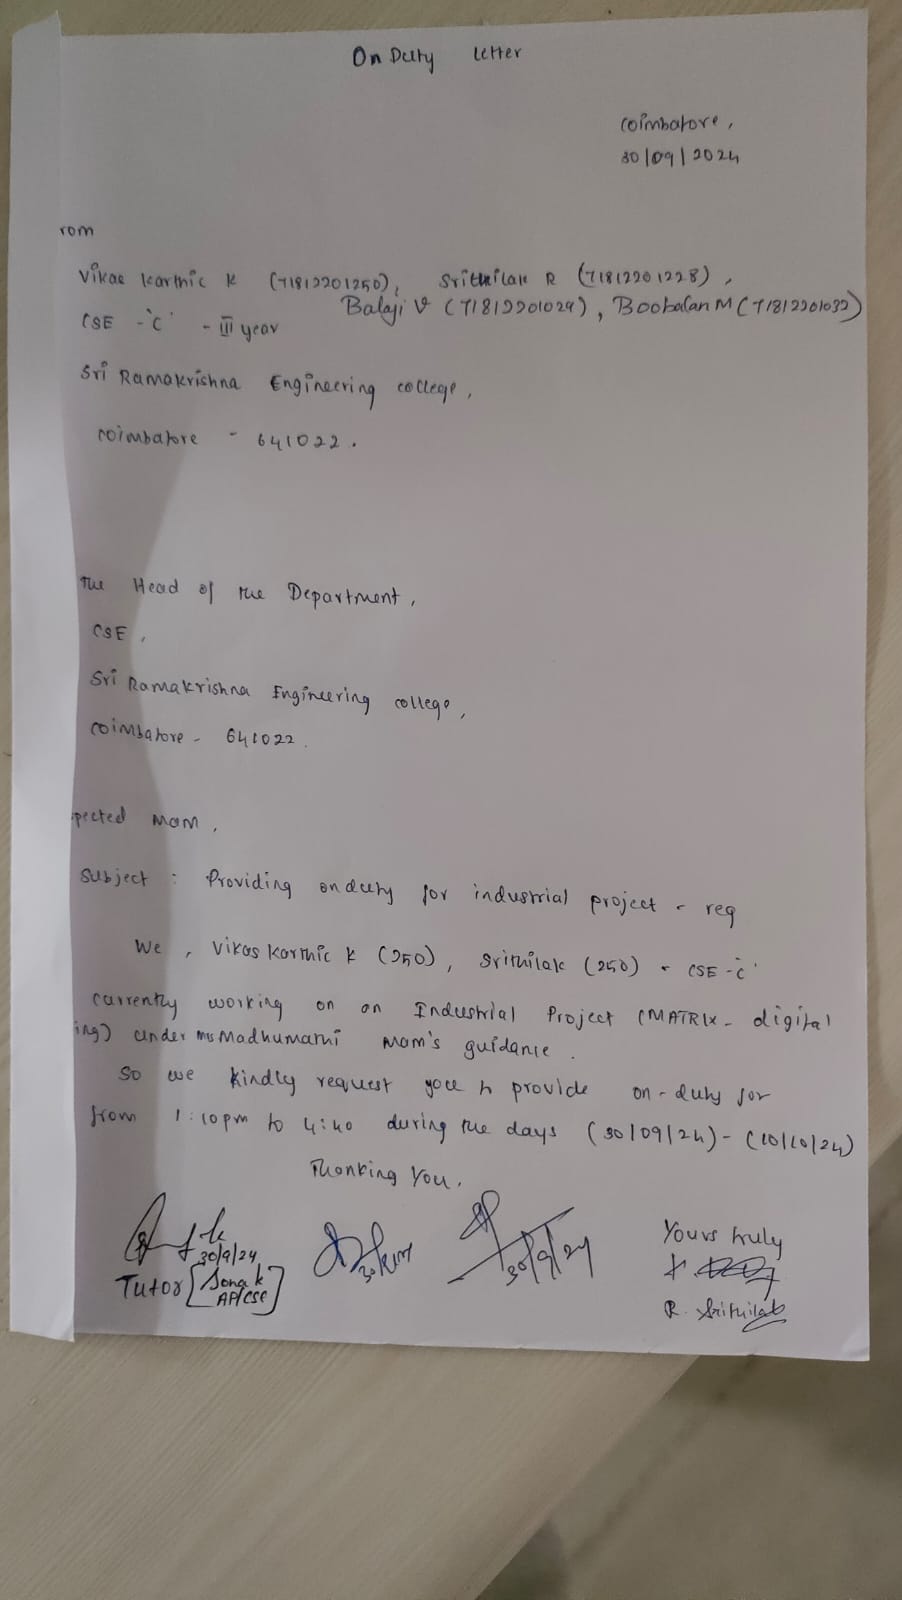 On Duty Letter
Coimbatore,
30/09/2024
rom
Vikas Karthic K (71812201250), Srithilak R (71812201228),
Balaji V (71812201029), Boobalan M (71812201032)
CSE - 'C' - III year
Sri Ramakrishna Engineering college,
coimbatore - 641022.
The Head of the Department,
CSE,
Sri Ramakrishna Engineering college,
coimbatore - 641022.
pected Mam,
Subject : Providing on duty for industrial project - req
We, Vikas Karthic K (250), Srithilak (250) - CSE - 'c'
currently working on an Industrial Project (MATRIX - digital
ing) under ms Madhumathi Mam's guidance.
So we kindly request you to provide on-duty for
from 1:10pm to 4:40 during the days (30/09/24) - (10/10/24)
Thanking You.
Yours truly
30/9/24
30/9/24
Tutor [Sona k
AP/CSE]
R. Srithilak